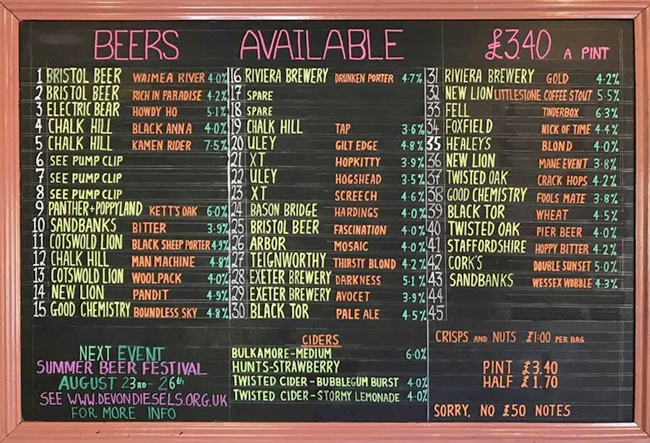 BEERS AVAILABLE £3.40 A PINT
1 BRISTOL BEER WAIMEA RIVER 4.0%
2 BRISTOL BEER RICH IN PARADISE 4.2%
3 ELECTRIC BEAR HOWDY HO 5.1%
4 CHALK HILL BLACK ANNA 4.0%
5 CHALK HILL KAMEN RIDER 7.5%
6 SEE PUMP CLIP
7 SEE PUMP CLIP
8 SEE PUMP CLIP
9 PANTHER+POPPYLAND KETT'S OAK 6.0%
10 SANDBANKS BITTER 3.9%
11 COTSWOLD LION BLACK SHEEP PORTER 4.9%
12 CHALK HILL MAN MACHINE 4.8%
13 COTSWOLD LION WOOLPACK 4.0%
14 NEW LION PANDIT 4.9%
15 GOOD CHEMISTRY BOUNDLESS SKY 4.8%
NEXT EVENT
SUMMER BEER FESTIVAL
AUGUST 23RD - 26TH
SEE WWW.DEVONDIESELS.ORG.UK
FOR MORE INFO
16 RIVIERA BREWERY DRUNKEN PORTER 4.7%
17 SPARE
18 SPARE
19 CHALK HILL TAP 3.6%
20 ULEY GILT EDGE 4.8%
21 XT HOPKITTY 3.9%
22 ULEY HOGSHEAD 3.5%
23 XT SCREECH 4.6%
24 BASON BRIDGE HARDINGS 4.0%
25 BRISTOL BEER FASCINATION 4.0%
26 ARBOR MOSAIC 4.0%
27 TEIGNWORTHY THIRSTY BLOND 4.2%
28 EXETER BREWERY DARKNESS 5.1%
29 EXETER BREWERY AVOCET 3.9%
30 BLACK TOR PALE ALE 4.5%
CIDERS
BULKAMORE-MEDIUM 6.0%
HUNTS-STRAWBERRY
TWISTED CIDER-BUBBLEGUM BURST 4.0%
TWISTED CIDER-STORMY LEMONADE 4.0%
31 RIVIERA BREWERY GOLD 4.2%
32 NEW LION LITTLESTONE COFFEE STOUT 5.5%
33 FELL TINDERBOX 6.3%
34 FOXFIELD NICK OF TIME 4.4%
35 HEALEY'S BLOND 4.0%
36 NEW LION MANE EVENT 3.8%
37 TWISTED OAK CRACK HOPS 4.2%
38 GOOD CHEMISTRY FOOLS MATE 3.8%
39 BLACK TOR WHEAT 4.5%
40 TWISTED OAK PIER BEER 4.0%
41 STAFFORDSHIRE HOPPY BITTER 4.2%
42 CORK'S DOUBLE SUNSET 5.0%
43 SANDBANKS WESSEX WOBBLE 4.3%
44
45
CRISPS AND NUTS £1.00 PER BAG
PINT £3.40
HALF £1.70
SORRY, NO £50 NOTES